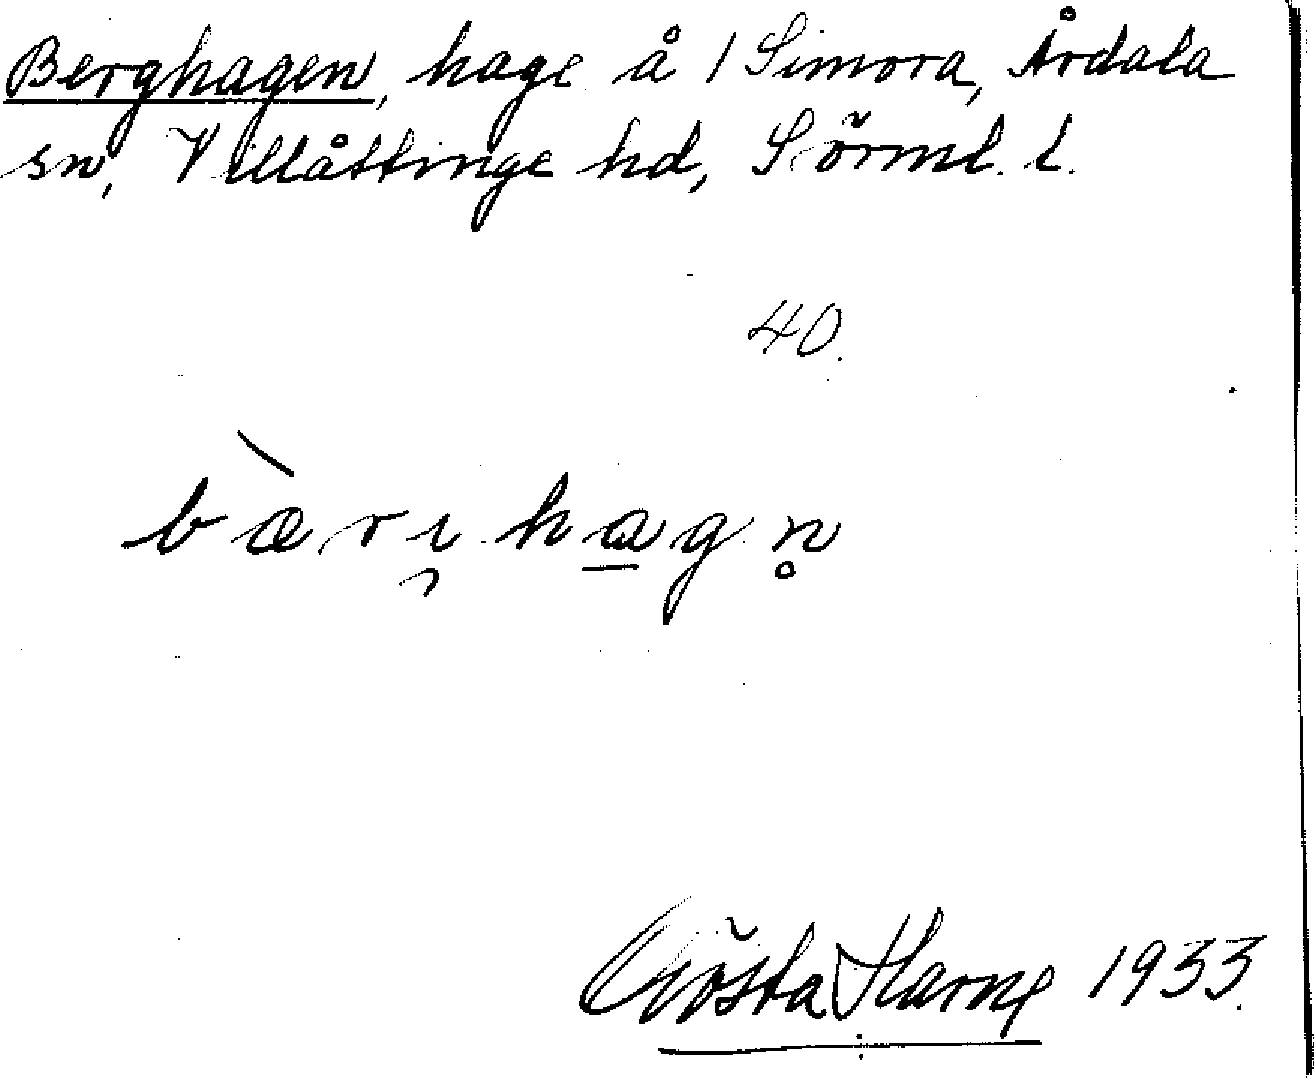 Berghagen, hage å 1 Simora, Årdala
sn, Villåttinge hd, Sörml. l.
40.
bæ̀ri̯hagn̥
Gösta Harne 1933.